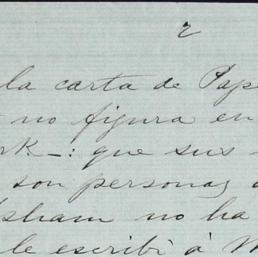 2
la carta de Pap
no figura en
rk—: que sus
son personas
sham no ha
le escribí á